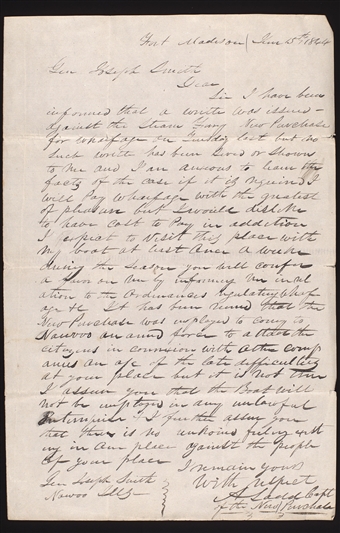 Fort Madison Jun 15th 1844
Gen Joseph Smith
Dear
Sir I have been
informed that a write was issued
against the Steam Ferry New Purchase
for Wharfage on last but no
such write has been Served or Shown
to me and I am anxious to learn the
facts of the case if it is required I
will Pay Wharfage with the greatest
of pleasure but I would dislike
to have cost to Pay in addition
I expect to visit this place with
my boat at least once a week
during the Season you will confer
a favor on me by informing me in
ation to the Ordinances Regulating Wharf
age &c It has been that the
New Purchase was employed to come to
Nauvoo an armed force to attack the
citizens in connexion with other comp
anies on a/c of the late difficulties
at your place but it is not true
I assure you that the Boat will
not be employed in any unlawful
Enterprise & I further assure you
that there is no unkind feeling with
us in our place against the people
of your place
I remain yours
With respect
A Ladd Capt
of the New Purchase
Gen Joseph Smith
Nauvoo Ills